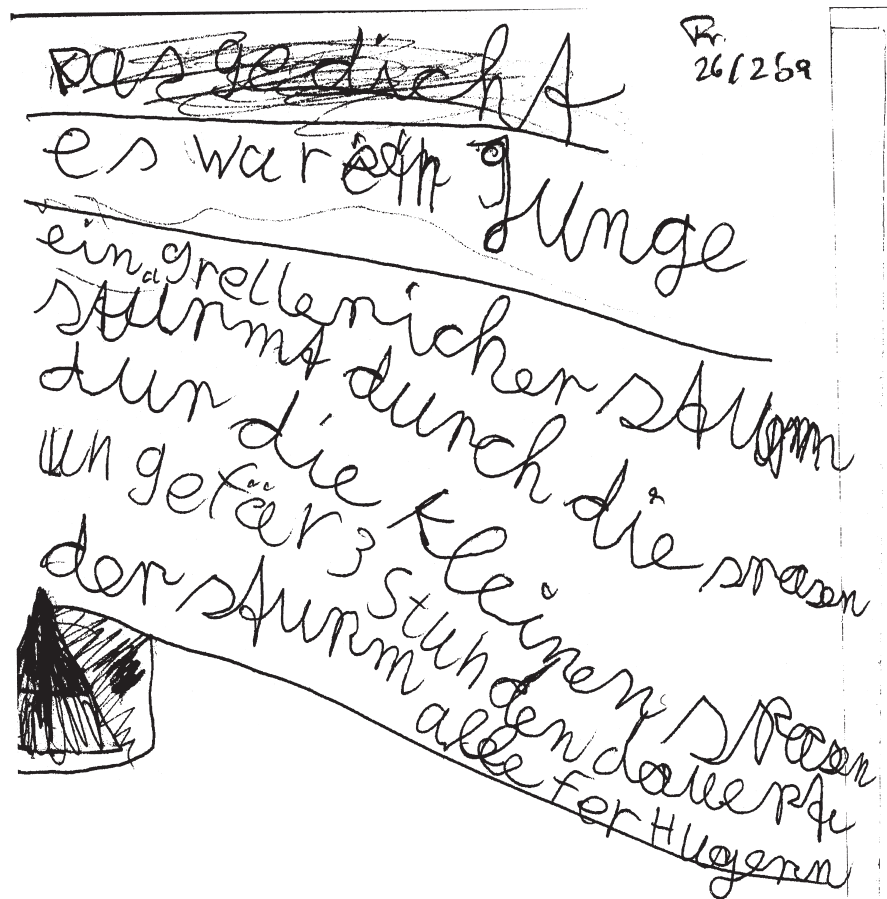 Das gedicht
26/2
es war ein Junge
ein grellenicher sturm
stürmt durch die srasen
dur die kleinen strasen
ungefär 3 Stunden dauerte
der sturm alle ferHugern